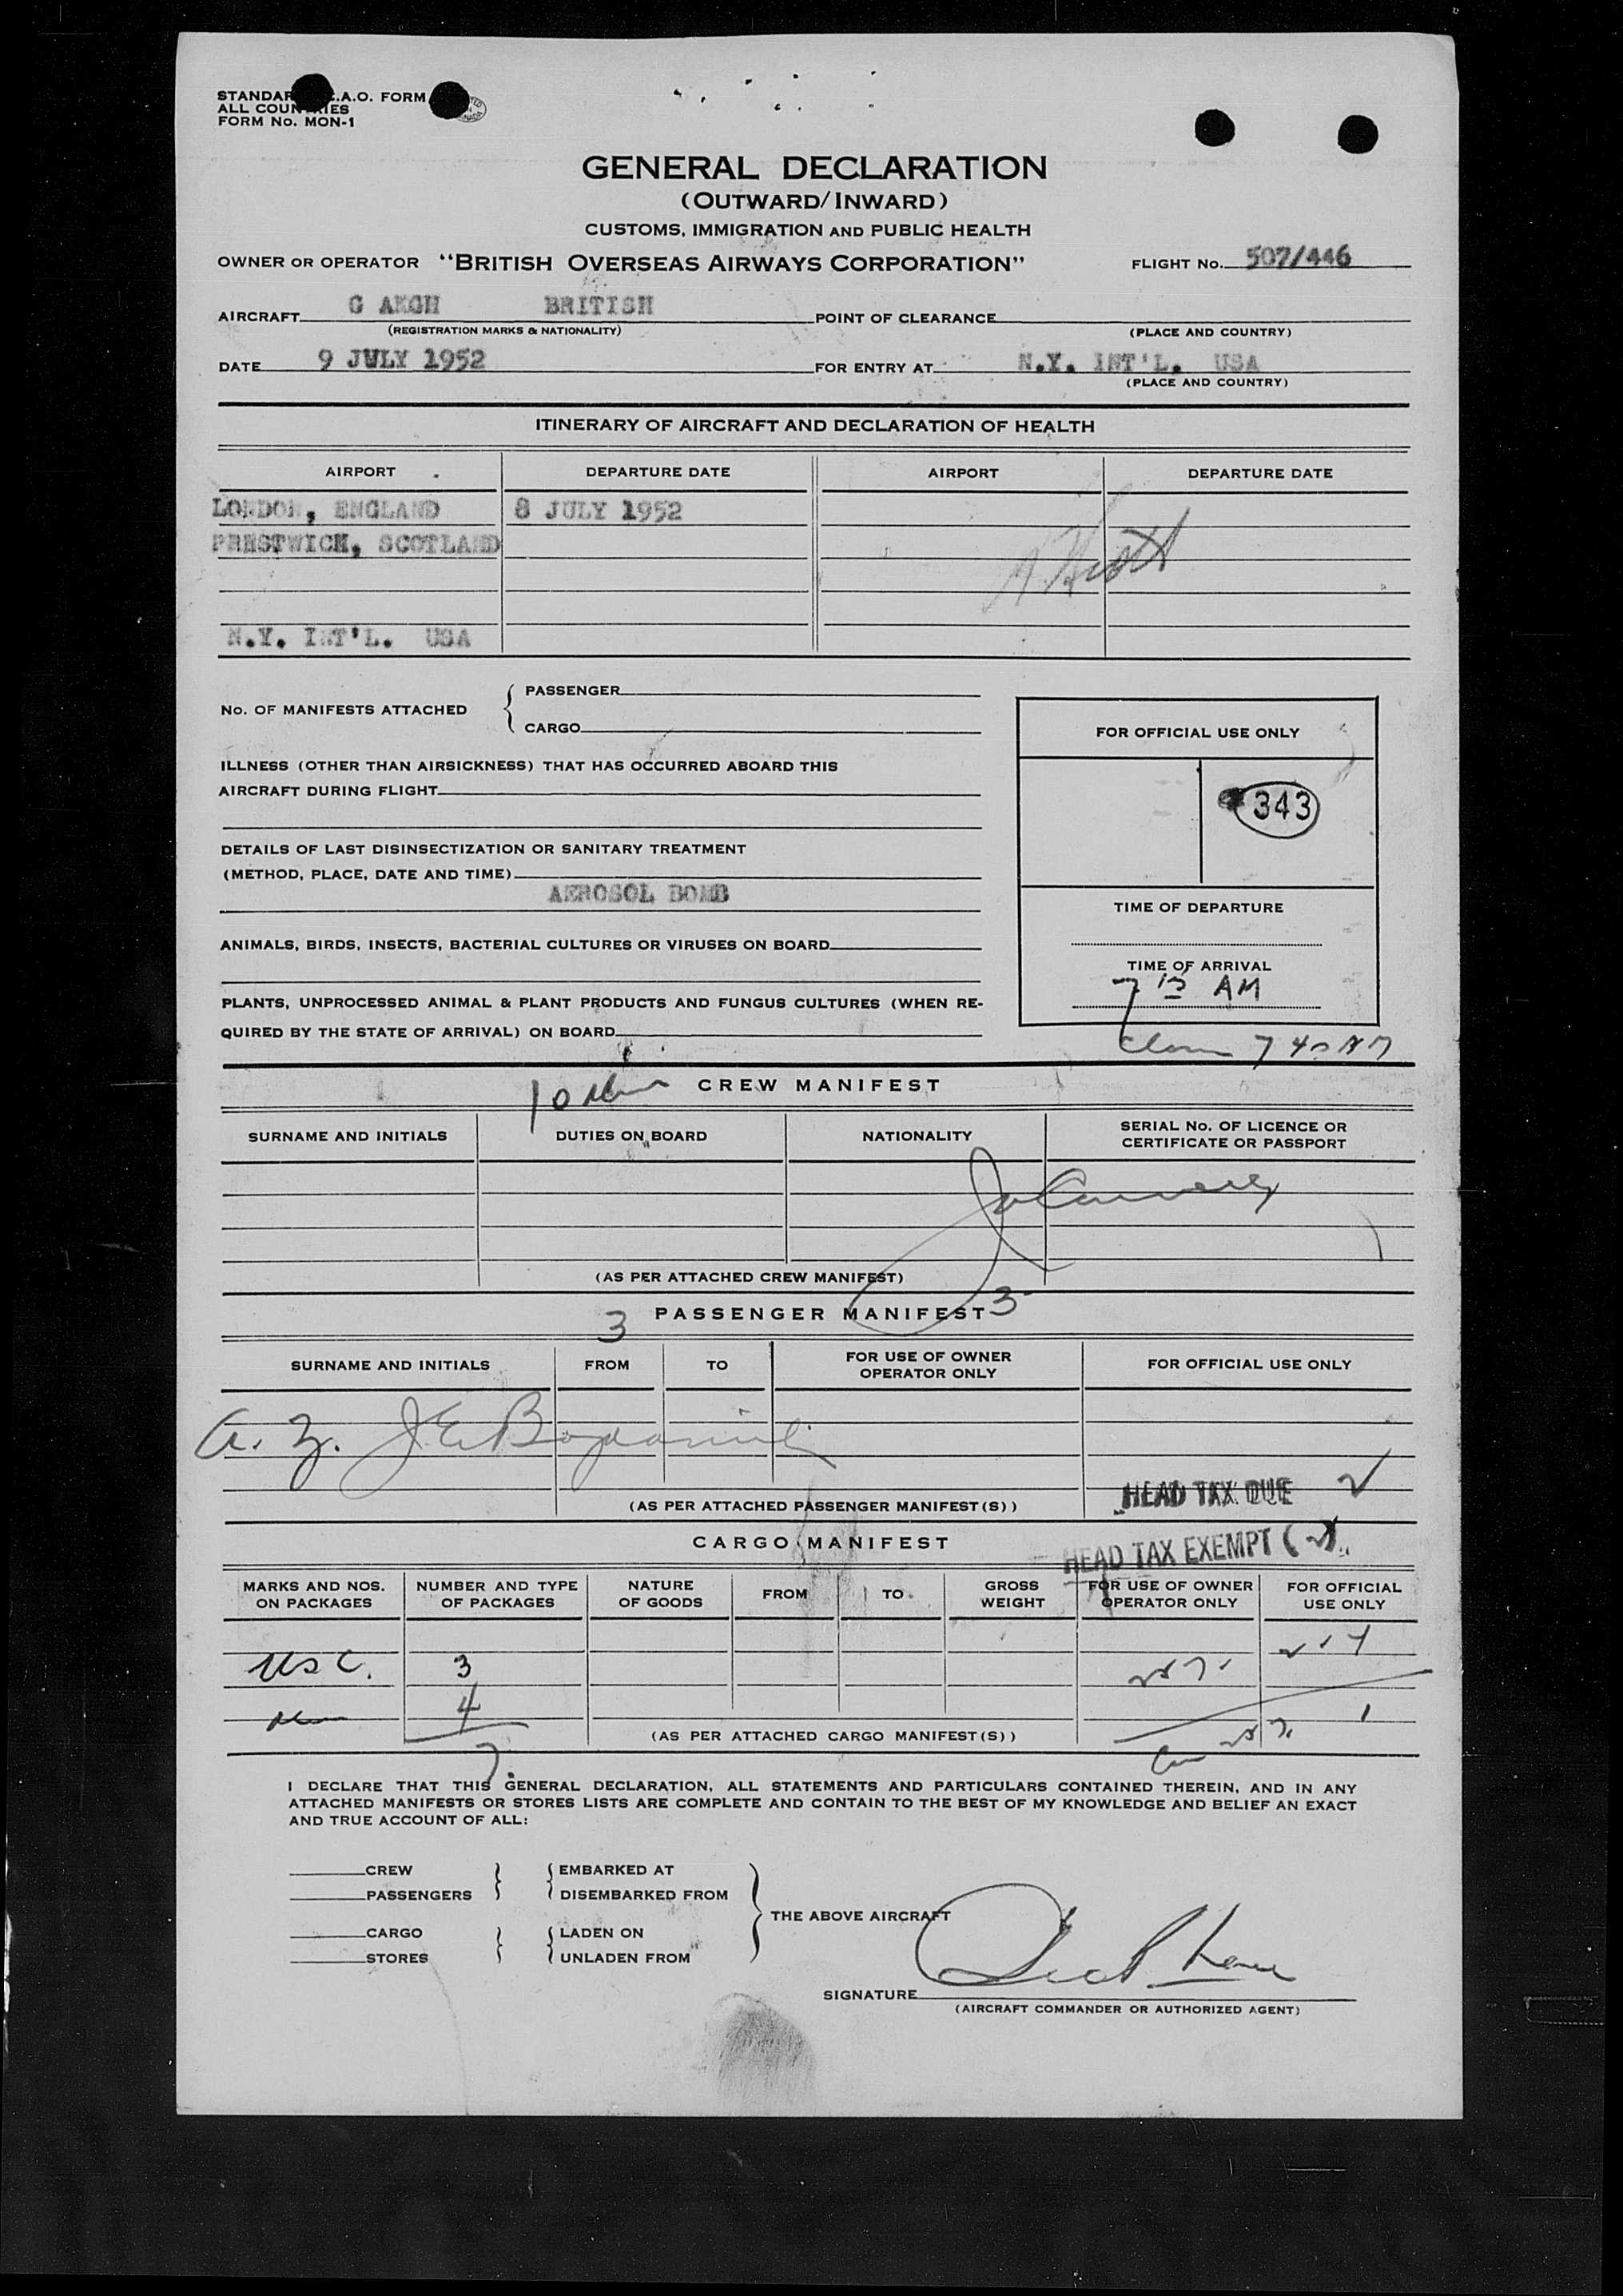 STANDAR .A.O. FORM
ALL COUNTRIES
FORM No. MON-1
GENERAL DECLARATION
(OUTWARD/INWARD)
CUSTOMS, IMMIGRATION AND PUBLIC HEALTH
OWNER OR OPERATOR "BRITISH OVERSEAS AIRWAYS CORPORATION" FLIGHT No. 507/446
AIRCRAFT G AKGH BRITISH POINT OF CLEARANCE
(REGISTRATION MARKS & NATIONALITY) (PLACE AND COUNTRY)
DATE 9 JULY 1952 FOR ENTRY AT N.Y. INT'L. USA
(PLACE AND COUNTRY)
ITINERARY OF AIRCRAFT AND DECLARATION OF HEALTH
AIRPORT DEPARTURE DATE AIRPORT DEPARTURE DATE
LONDON, ENGLAND 8 JULY 1952
PRESTWICK, SCOTLAND
N.Y. INT'L. USA
No. OF MANIFESTS ATTACHED { PASSENGER
CARGO
FOR OFFICIAL USE ONLY
343
ILLNESS (OTHER THAN AIRSICKNESS) THAT HAS OCCURRED ABOARD THIS
AIRCRAFT DURING FLIGHT
DETAILS OF LAST DISINSECTIZATION OR SANITARY TREATMENT
(METHOD, PLACE, DATE AND TIME)
AEROSOL BOMB
TIME OF DEPARTURE
ANIMALS, BIRDS, INSECTS, BACTERIAL CULTURES OR VIRUSES ON BOARD
TIME OF ARRIVAL
7 15 AM
PLANTS, UNPROCESSED ANIMAL & PLANT PRODUCTS AND FUNGUS CULTURES (WHEN RE-
QUIRED BY THE STATE OF ARRIVAL) ON BOARD
7 40 AM
10 CREW MANIFEST
SURNAME AND INITIALS DUTIES ON BOARD NATIONALITY SERIAL No. OF LICENCE OR
CERTIFICATE OR PASSPORT
(AS PER ATTACHED CREW MANIFEST)
3 PASSENGER MANIFEST 3
SURNAME AND INITIALS FROM TO FOR USE OF OWNER
OPERATOR ONLY FOR OFFICIAL USE ONLY
HEAD TAX DUE
(AS PER ATTACHED PASSENGER MANIFEST(S))
CARGO MANIFEST
HEAD TAX EXEMPT
MARKS AND NOS.
ON PACKAGES NUMBER AND TYPE
OF PACKAGES NATURE
OF GOODS FROM TO GROSS
WEIGHT FOR USE OF OWNER
OPERATOR ONLY FOR OFFICIAL
USE ONLY
USC. 3
4
(AS PER ATTACHED CARGO MANIFEST(S))
7.
I DECLARE THAT THIS GENERAL DECLARATION, ALL STATEMENTS AND PARTICULARS CONTAINED THEREIN, AND IN ANY
ATTACHED MANIFESTS OR STORES LISTS ARE COMPLETE AND CONTAIN TO THE BEST OF MY KNOWLEDGE AND BELIEF AN EXACT
AND TRUE ACCOUNT OF ALL:
CREW } { EMBARKED AT
PASSENGERS } { DISEMBARKED FROM
THE ABOVE AIRCRAFT
CARGO } { LADEN ON
STORES } { UNLADEN FROM
SIGNATURE
(AIRCRAFT COMMANDER OR AUTHORIZED AGENT)